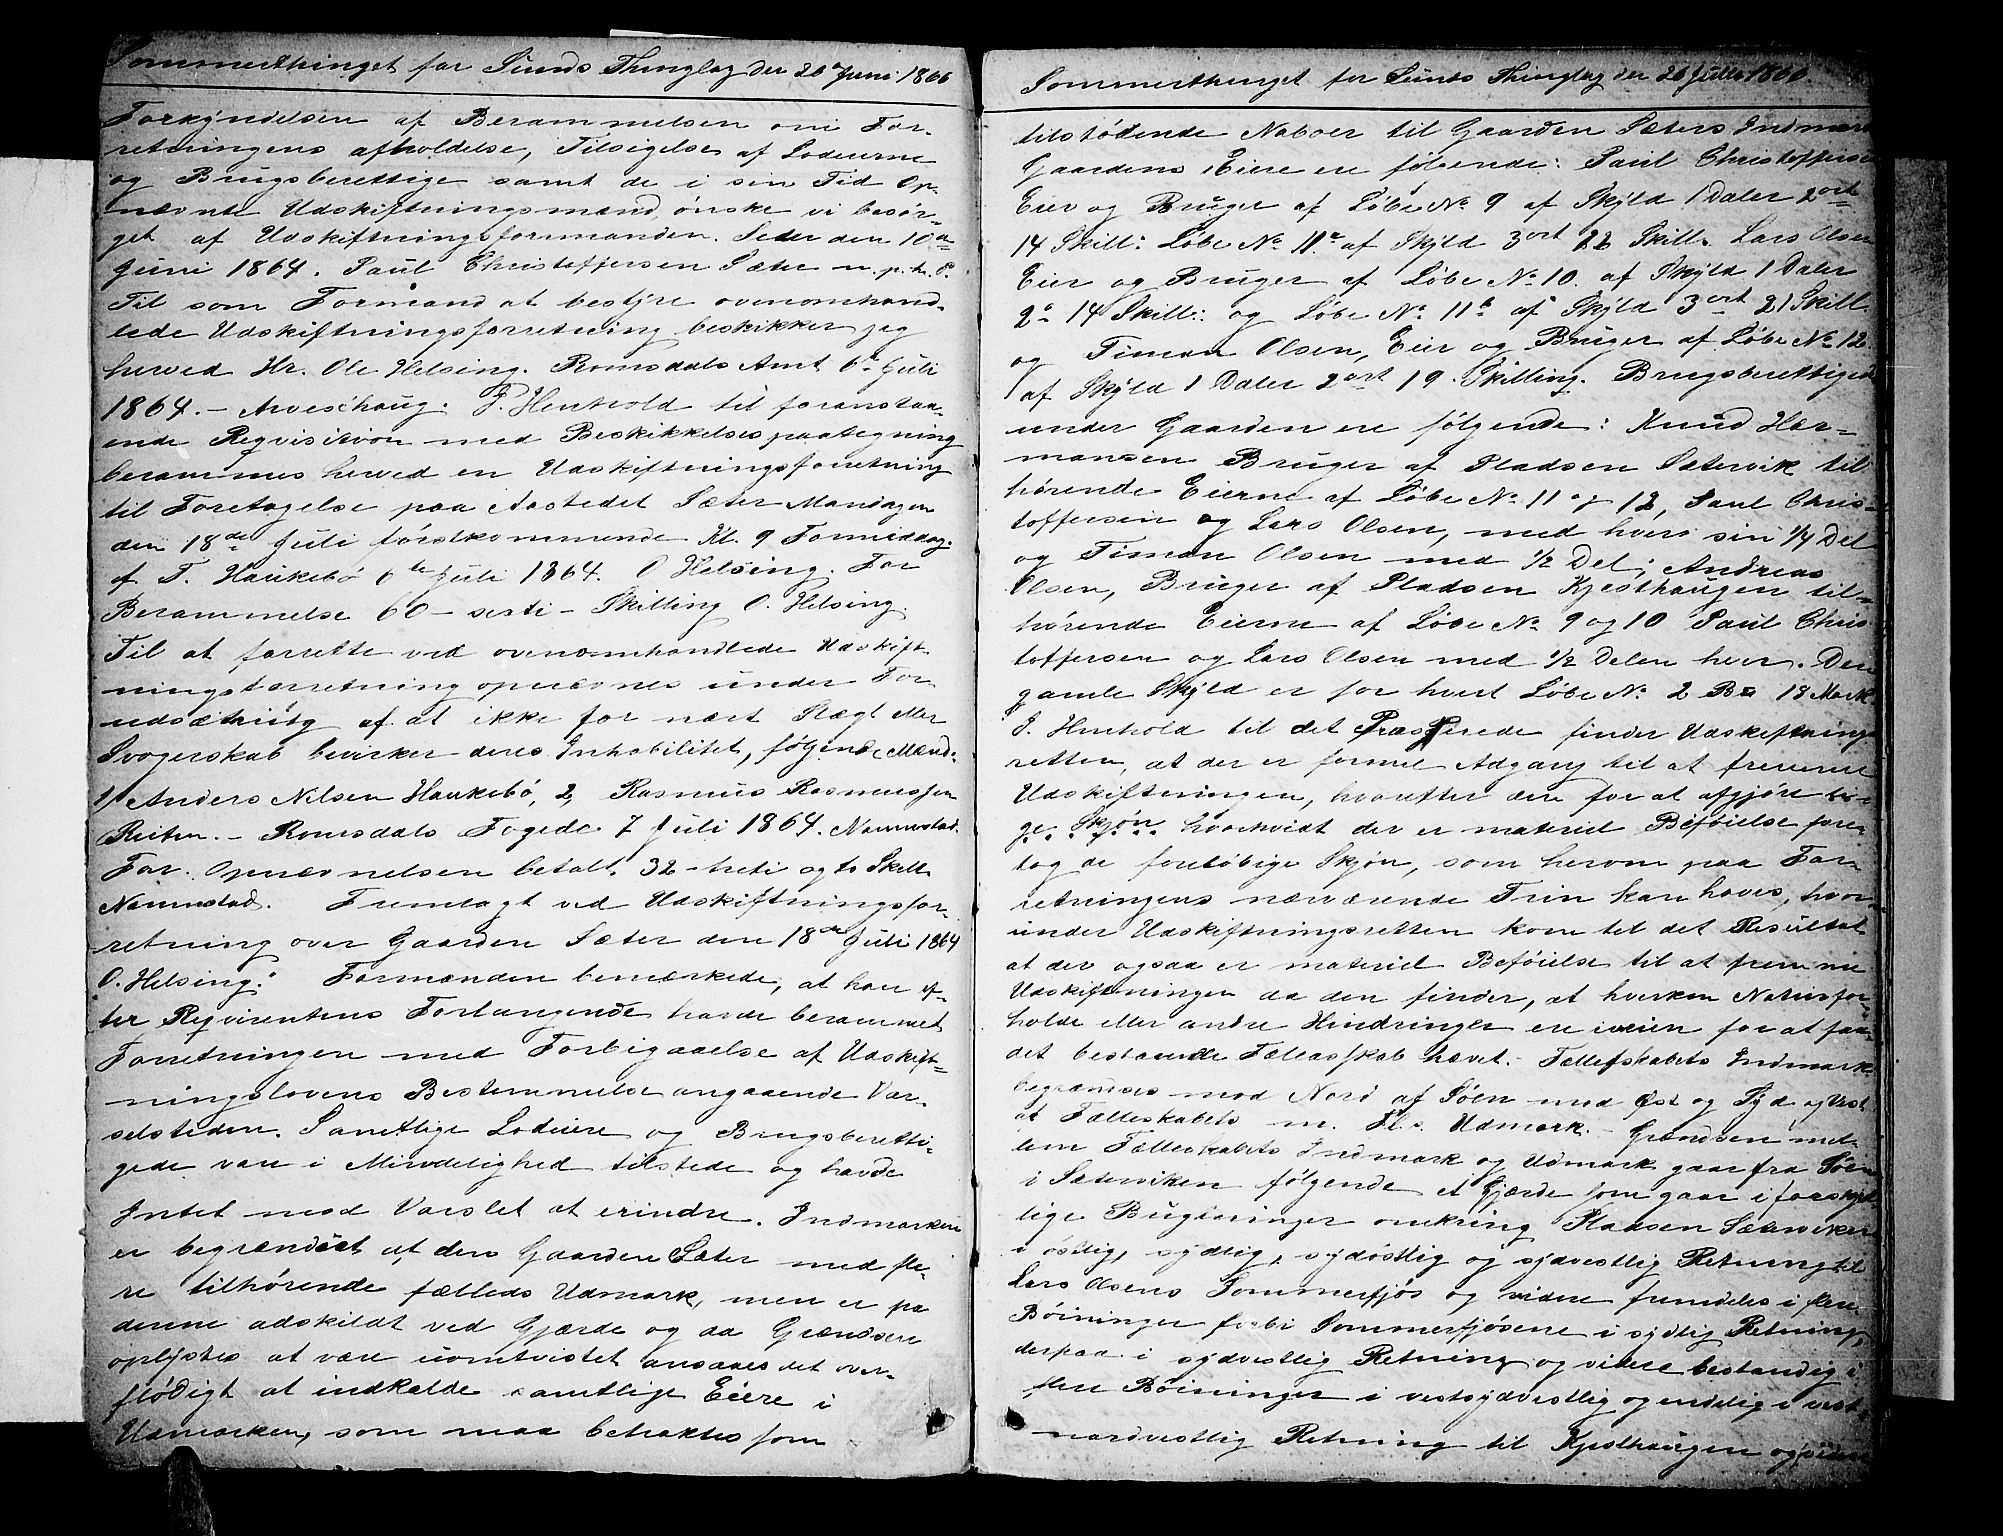 Sommerthinget for Sunds Thinglag den 26 Juni 1866
Forkyndelsen af Berammelsen om For-
retningens afholdelse, Tilsigelse af Lodeierne
og Brugsberettige samt de i sin Tid Op-
nævnte Udskiftningsmænd, ønske vi besør-
get af Udskiftningsformanden. Sæter den 10de
Juni 1864. Paul Christoffersen Sæter m. p. h. P.
Til som Formand at bestyre ovenomhand-
lede Udskiftningsforretning beskikker jeg
herved Hr. Ole Helsing. Romsdals Amt 6te Juli
1864. – Aveschoug. J. Henhold til foranstaa-
ende Reqvisition med Beskikkelsespaategning
berammes herved en Udskiftningsforretning
til Foretagelse paa Aastedet Sæter Mandagen
den 18de Juli førstkommende Kl. 9 Formiddag.
p. T. Haukebø 6te Juli 1864. O Helsing. For
Berammelse 60 – sexti – Skilling O. Helsing.
Til at forrette ved ovenomhandlede Udskift-
ningsforretning opnævnes under For-
udsætning af at ikke for nært Slægt eller
Svogerskab bevirker deres Inhabilitet, følgende Mænd:
1, Anders Nilsen Haukebø, 2, Rasmus Rasmussen
Reiten. – Romsdals Fogede 7 Juli 1864. Naumstad.
For Opnævnelsen betalt. 32 – treti og to Skill.
Naumstad. Fremlagt ved Udskiftningsfor-
retning over Gaarden Sæter den 18de Juli 1864
O. Helsing. Formanden bemærkede, at han ef-
ter Reqvirentens Forlangende havde berammet
Forretningen med Forbigaaelse af Udskift-
ningslovens Bestemmelse angaaende Var-
selstiden. Samtlige Lodeiere og Brugsberetti-
gede vare i Mindelighed tilstede og havde
Intet mod Varslet at erindre. Indmarken
er begrændset af den Gaarden Sæter med fle-
re tilhørende fælleds Udmark, men er fra
denne adskildt ved Gjærde og da Grændsen
oplystes at være uomtvistet ansaaes det over-
flødigt at indkalde samtlige Eiere i
Udmarken, som maa betraktes som
Sommerthinget for Sunds Thinglag den 26 Juli 1866.
tilstødende Naboer til Gaarden Sæters Indmark
Gaardens Eiere ere følgende: Paul Christoffersen
Eier og Bruger af Løbe No 9 af Skyld 1 Daler 2 ort
14 Skill: Løbe No 11a af Skyld 3 ort 22 Skill. Lars Olsen
Eier og Bruger af Løbe No 10. af Skyld 1 Daler
2o 14 Skill: og Løbe No 11b af Skyld 3 ort 21 Skill.
og Timan Olsen, Eier og Bruger af Løbe No 12.
af Skyld 1 Daler 2 ort 19 Skilling. Brugsberettigede
under Gaarden ere følgende: Knud Har-
mansen Bruger af Pladsen Sætervik til-
hørende Eierne af Løbe No 11 og 12, Paul Chris-
toffersen og Lars Olsen, med hvers sin 1/4 Del
og Timan Olsen med 1/2 Del; Andreas
Olsen, Bruger af Pladsen Kjesthaugen til-
hørende Eierne af Løbe No 9 og 10 Paul Chris-
toffersen og Lars Olsen med 1/2 Delen hver. Den
gamle Skyld er for hvert Løbe No 2 Pd 18 Mark
J. Henhold til det Præsterede finder Udskiftnings-
retten, at der er formel Adgang til at fremme
Udskiftningen, hvorefter dere for at afgjøre
Skjøn hvorhvidt der er materiel Beføielse fore-
tog de foreløbige Skjøn, som herom paa For-
retningens nærværende Trin kan haves, hvor-
under Udskiftningsretten kom til det Resultat
at der ogsaa er materiel Beføielse til at fremme
Udskiftningen da den finder, at hverken Naturfor-
holde eller andre Hindringer ere iveien for at faa
det bestaaende Fællesskab hævet. – Fællesskabets Indmark
begrændses mod Nord af Søen mod Øst og Syd og Vest
af Fælleskabets m. Fl.s Udmark. – Grændsen mel-
lem Fælleskabets Indmark og Udmark gaar fra Søen
i Sæterviken følgende et Gjærde som gaar i forskjel-
lige Bugtninger omkring Pladsen Sæterviken
i østlig, sydlig, sydøstlig og sydvestlig Retning til
Lars Olsens Sommerfjøs og videre fremdeles i flere
Bøininger forbi Sommerfjøsene i sydlig Retning,
derpaa i sydvestlig Retning og videre bestandig i
flere Bøininger i vestsydvestlig og endelig i vest-
nordvestlig Retning til Kjesthaugen og